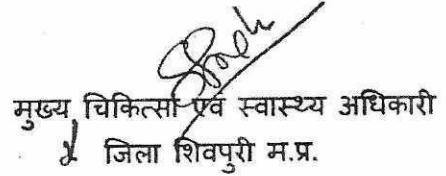 मुख्य चिकित्सा एवं स्वास्थ्य अधिकारी
जिला शिवपुरी म.प्र.